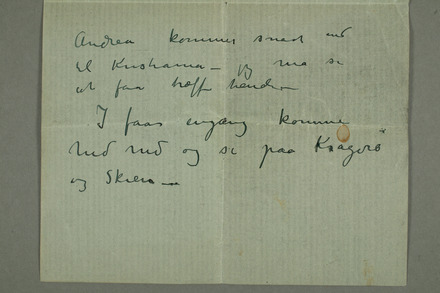 Andrea kommer snart ind
til Kristiania – jeg må se
at faa træffe hende –
I faar engang komme
med ned og se paa Kragerø
og Skien –